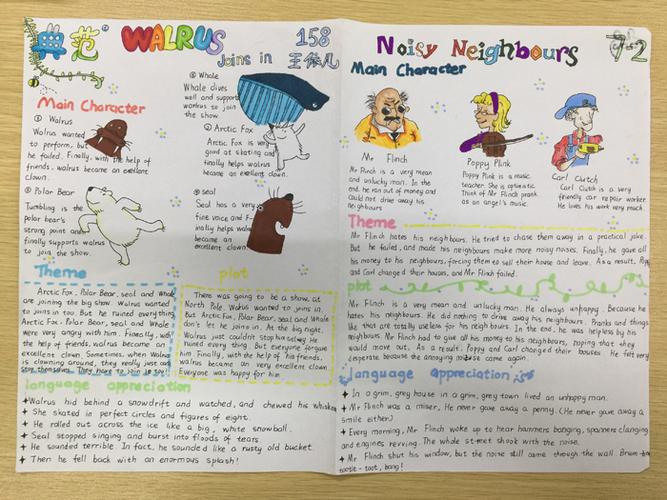 典范
WALRUS
Joins in
158
Main Character
① Walrus
Walrus wanted
to perform, but
he failed. Finally, with the help of
friends, walrus became an exellent
clown.
② Polar Bear
Tumbling is the
polar bear's
strong point and
finally supports walrus
to join the show.
④ Whale
Whale dives
well and supports
walrus to join
the show.
② Arctic Fox
Arctic Fox is very
good at skating and
finally helps walrus
became an exellent clown.
⑤ seal
Seal has a very
fine voice and F-
inally helps walrus
became an
excellent clown
Theme
Arctic Fox, Polar Bear, seal and Whale
are joining the big show. Walrus wanted
to joins in too. But he ruined everything
Arctic Fox, Polar Bear, seal and Whale
were very angry with him. Finally, with
the help of friends, walrus became an
excellent clown. Sometimes, when Walrus
is clowning around, they really just can't
stop themselves. They have to join in too!
plot
There was going to be a show at
North Pole. Walrus wanted to joins in.
But Arctic Fox, Polar Bear, seal and Whale
don't let he join in. At the big night,
Walrus just couldn't stop himself. He
ruined every thing. But Everyone forgave
him. Finally, with the help of his friends,
walrus became an very excellent clown.
Everyone was happy for him.
language appreciation
Walrus hid behind a snowdrift and watched, and chewed his whiskers
She skated in perfect circles and figures of eight.
He rolled out across the ice like a big, white snowball.
Seal stopped singing and burst into floods of tears.
He sounded terrible. In fact, he sounded like a rusty old bucket.
Then he fell back with an enormous splash!
Noisy Neighbours
72
Main Character
Mr Flinch
Mr Flinch is a very mean
and unlucky man. In the
end, he ran out of money and
Could not drive away his
neighbours
Poppy Plink
Poppy Plink is a music
teacher. She is optimistic
Think of Mr Flinch prank
as an angel's music.
Carl Clutch
Carl Clutch is a very
friendly car repair worker.
He likes his work very much.
Theme
Mr Flinch hates his neighbours. He tried to chase them away in a practical joke.
But he failed, and made his neighbours make more noises. Finally, he gave all
his money to his neighbours, forcing them to sell their house and leave. As a result, Poppy
and Carl changed their houses, and Mr Flinch failed.
plot
Mr Flinch is a very mean and unlucky man. He always unhappy. Because he
hates his neighbours. He did nothing to drive away his neighbours. Pranks and things
like that are totally useless for his neighbours. In the end, he was helpless by his
neighbours. Mr Flinch had to give all his money to his neighbours, hoping that they
would move out. As a result, Poppy and Carl changed their houses. He felt very
desperate because the annoying noise came again.
language appreciation
In a grim, grey house in a grim, grey town lived an unhappy man.
Mr Flinch was a miser. He never gave away a penny. (He never gave away a
smile either.)
Every morning, Mr Flinch woke up to hear hammers banging, spanners clanging
and engines revving. The whole street shook with the noise.
Mr Flinch shut his window, but the noise still came through the wall. Brum-brum,
tootle-toot, bang!